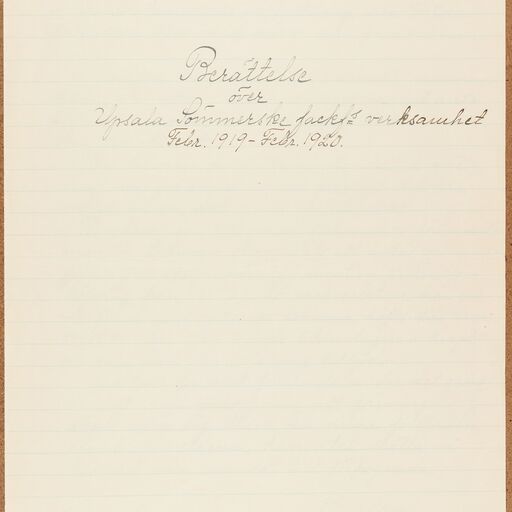 Berättelse
över
Upsala Sömmerske fackf:s verksamhet
Febr. 1919 - Febr. 1920.